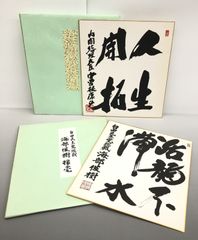 人生
開拓
内閣総理大臣
活龍不
滞水
自由民主党総裁 海部俊樹
自由民主党総裁
海部俊樹揮毫